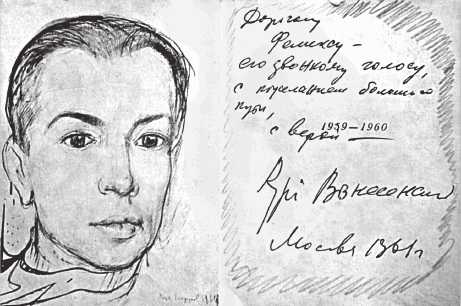 Дорогому
Феликсу –
его звонкому голосу,
с пожеланием большого
пути,
с верой
1959—1960
Вознесенский
Москва 1961г